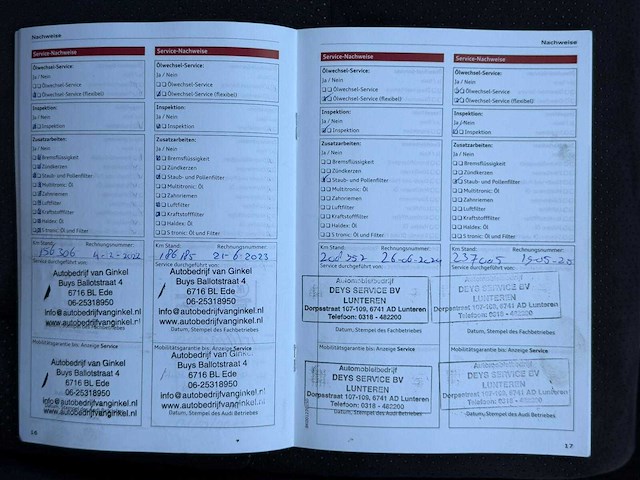 Nachweise
Service-Nachweise
Ölwechsel-Service:
Ja / Nein
Ölwechsel-Service
Ölwechsel-Service (flexibel)
Inspektion:
Ja / Nein
Inspektion
Zusatzarbeiten:
Ja / Nein
Bremsflüssigkeit
Zündkerzen
Staub- und Pollenfilter
Multitronic: Öl
Zahnriemen
Luftfilter
Kraftstofffilter
Haldex: Öl
S tronic: Öl und Filter
Km Stand: Rechnungsnummer:
156306
Service durchgeführt von:
Autobedrijf van Ginkel
Buys Ballotstraat 4
6716 BL Ede
06-25318950
info@autobedrijfvanginkel.nl
www.autobedrijfvanginkel.nl
Datum, Stempel des Fachbetriebes
Mobilitätsgarantie bis: Anzeige Service
Autobedrijf van Ginkel
Buys Ballotstraat 4
6716 BL Ede
06-25318950
info@autobedrijfvanginkel.nl
www.autobedrijfvanginkel.nl
Service-Nachweise
Ölwechsel-Service:
Ja / Nein
Ölwechsel-Service
Ölwechsel-Service (flexibel)
Inspektion:
Ja / Nein
Inspektion
Zusatzarbeiten:
Ja / Nein
Bremsflüssigkeit
Zündkerzen
Staub- und Pollenfilter
Multitronic: Öl
Zahnriemen
Luftfilter
Kraftstofffilter
Haldex: Öl
S tronic: Öl und Filter
Km Stand: Rechnungsnummer:
186185 21-6-2023
Autobedrijf van Ginkel
Buys Ballotstraat 4
6716 BL Ede
06-25318950
info@autobedrijfvanginkel.nl
www.autobedrijfvanginkel.nl
Datum, Stempel des Fachbetriebes
Mobilitätsgarantie bis: Anzeige Service
Autobedrijf van Ginkel
Buys Ballotstraat 4
6716 BL Ede
06-25318950
info@autobedrijfvanginkel.nl
www.autobedrijfvanginkel.nl
Datum, Stempel des Audi Betriebes
Nachweise
Service-Nachweise
Ölwechsel-Service:
Ja / Nein
Ölwechsel-Service
Ölwechsel-Service (flexibel)
Inspektion:
Ja / Nein
Inspektion
Zusatzarbeiten:
Ja / Nein
Bremsflüssigkeit
Zündkerzen
Staub- und Pollenfilter
Multitronic: Öl
Zahnriemen
Luftfilter
Kraftstofffilter
Haldex: Öl
S tronic: Öl und Filter
Km Stand: Rechnungsnummer:
26-06-2024
Automobielbedrijf
DEYS SERVICE BV
LUNTEREN
Dorpsstraat 107-109, 6741 AD Lunteren
Telefoon: 0318 - 482200
Datum, Stempel des Fachbetriebes
Mobilitätsgarantie bis: Anzeige Service
Automobielbedrijf
DEYS SERVICE BV
LUNTEREN
Dorpsstraat 107-109, 6741 AD Lunteren
Telefoon: 0318 - 482200
Datum, Stempel des Audi Betriebes
Service-Nachweise
Ölwechsel-Service:
Ja / Nein
Ölwechsel-Service
Ölwechsel-Service (flexibel)
Inspektion:
Ja / Nein
Inspektion
Zusatzarbeiten:
Ja / Nein
Bremsflüssigkeit
Zündkerzen
Staub- und Pollenfilter
Multitronic: Öl
Zahnriemen
Luftfilter
Kraftstofffilter
Haldex: Öl
S tronic: Öl und Filter
Km Stand: Rechnungsnummer:
237005
Service durchgeführt von:
DEYS SERVICE BV
LUNTEREN
Dorpsstraat 107-109, 6741 AD Lunteren
Telefoon: 0318 - 482200
Datum, Stempel des Fachbetriebes
Mobilitätsgarantie bis: Anzeige Service
Automobielbedrijf
DEYS SERVICE BV
LUNTEREN
Dorpsstraat 107-109, 6741 AD Lunteren
Telefoon: 0318 - 482200
Datum, Stempel des Audi Betriebes
17